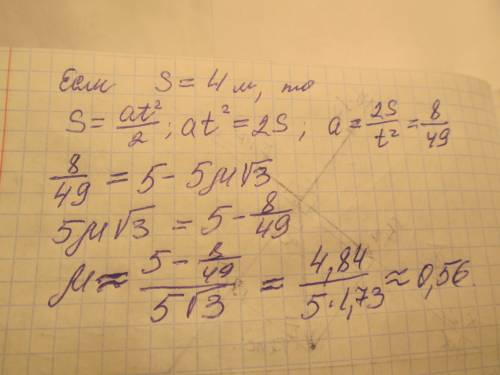 Если S = 4 м, то
S = at²/2; at² = 2S; a = 2S/t² = 8/49
8/49 = 5 - 5μ√3
5μ√3 = 5 - 8/49
μ ≈ (5 - 8/49)/(5√3) ≈ 4,84/(5·1,73) ≈ 0,56.